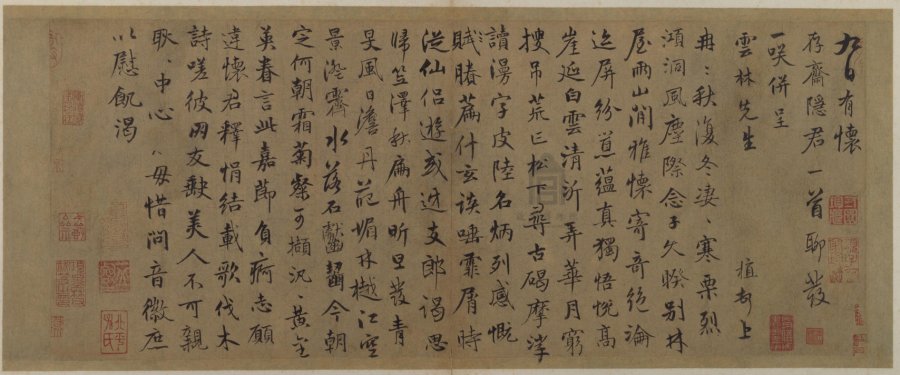 九日有懷
存齋隱君一首聊發
一咲併呈
雲林先生 植 上
冉〻秋復冬淒〻寒栗烈
澒洞風塵際念子久睽別林
屋兩山間雅懷寄奇絕論
迹屏紛囂蘊真獨悟悅高
崖延白雲清沂弄華月窮
搜吊荒亡松下尋古碣摩挲
讀漫字皮陸名炳列感慨
賦賸篇什玄談唾霏屑時
從仙侶遊或迓支郎謁思
歸笠澤秋扁舟昕旦發青
旻風日澹丹葩媚林樾江空
景澄霽水落石齧今朝
定何朝霜菊粲可擷況〻黃金
英眷言此嘉節負痾志願
違懷君釋悁結載歌伐木
詩嗟彼朋友缺美人不可親
耿〻中心〻毋惜問音徽庶
以慰飢渴